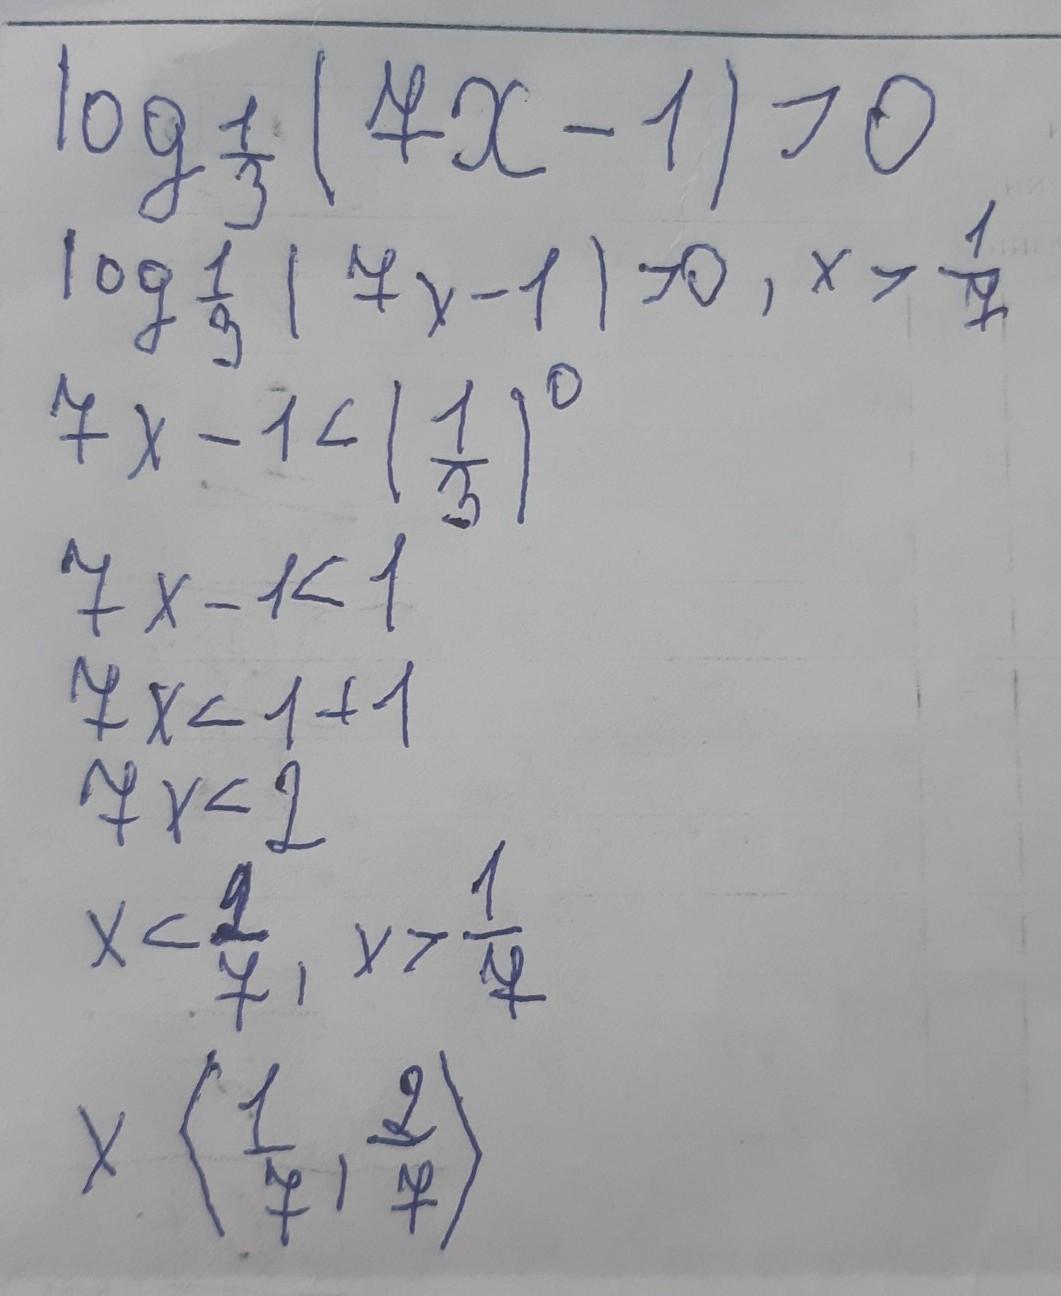 log 1/3 (7x-1)>0
log 1/3 (7x-1)>0, x > 1/7
7x-1<(1/3)^0
7x-1<1
7x<1+1
7x<2
x<2/7, x>1/7
x (1/7, 2/7)